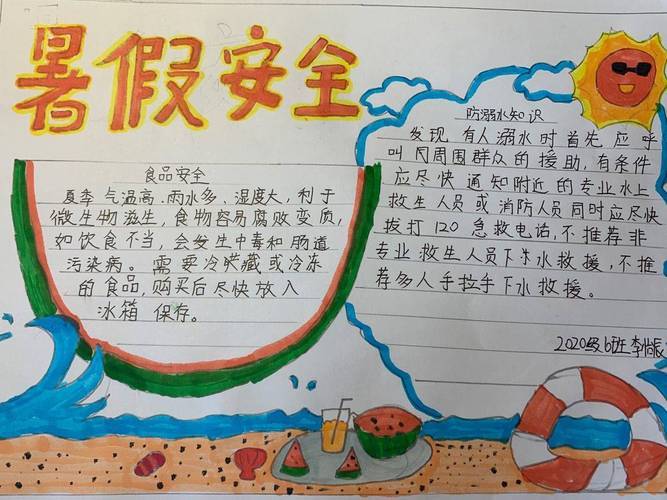 暑假安全
食品安全
夏季气温高、雨水多、湿度大,利于
微生物滋生,食物容易腐败变质,
如饮食不当,会发生中毒和肠道
污染病。需要冷贮藏或冷冻
的食品,购买后尽快放入
冰箱保存。
防溺水知识
发现有人溺水时首先应呼
叫周围群众的援助,有条件
应尽快通知附近的专业水上
救生人员或消防人员同时应尽快
拨打120急救电话,不推荐非
专业救生人员下水救援,不推
荐多人手拉手下水救援。
2020级6班李